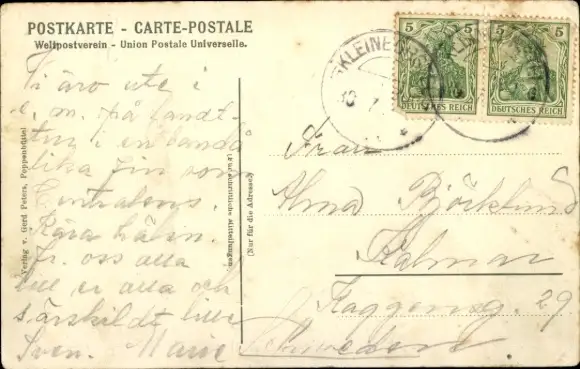 POSTKARTE - CARTE-POSTALE
Weltpostverein - Union Postale Universelle.
Vi äro ute i
e. m. på landt-
tur i en landå
lika fin som
Centralens.
Kära häln.
fr. oss alla
till er alla och
särskildt lille
Sven. Marie
Verlag v. Gerd Peters, Poppenbüttel
(Für schriftliche Mitteilungen)
(Nur für die Adresse)
KLEINE
10
5 5
DEUTSCHES REICH
5 5
DEUTSCHES REICH
Frau
Alma Björklund
Kalmar
Kaggensg. 29
Schweden